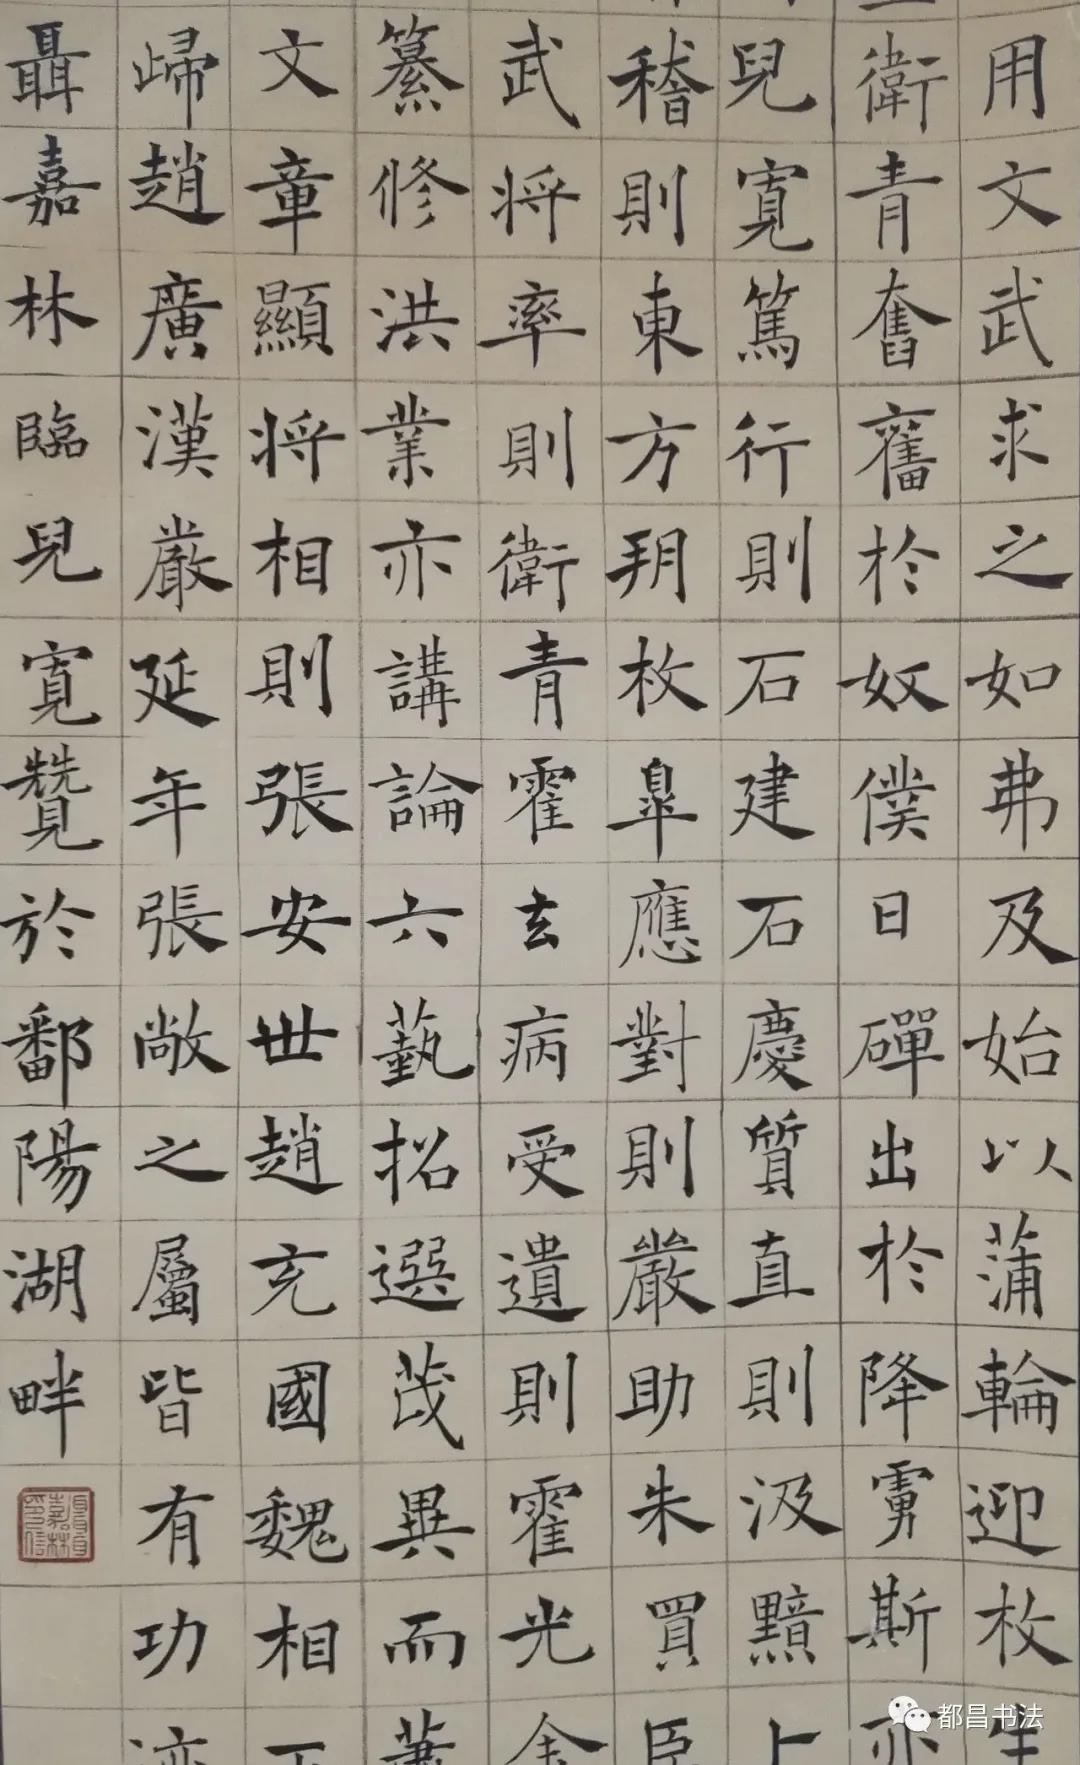 用文武求之如弗及始以蒲輪迎枚生
衛青奮舊於奴僕日磾出於降虜斯亦
兒寬篤行則石建石慶質直則汲黯卜
稽則東方朔枚皋應對則嚴助朱買臣
武將率則衛青霍去病受遺則霍光金
纂修洪業亦講論六藝招選茂異而蕭
文章顯將相則張安世趙充國魏相
歸趙廣漢嚴延年張敞之屬皆有功
聶嘉林臨兒寬贊於鄱陽湖畔
都昌书法